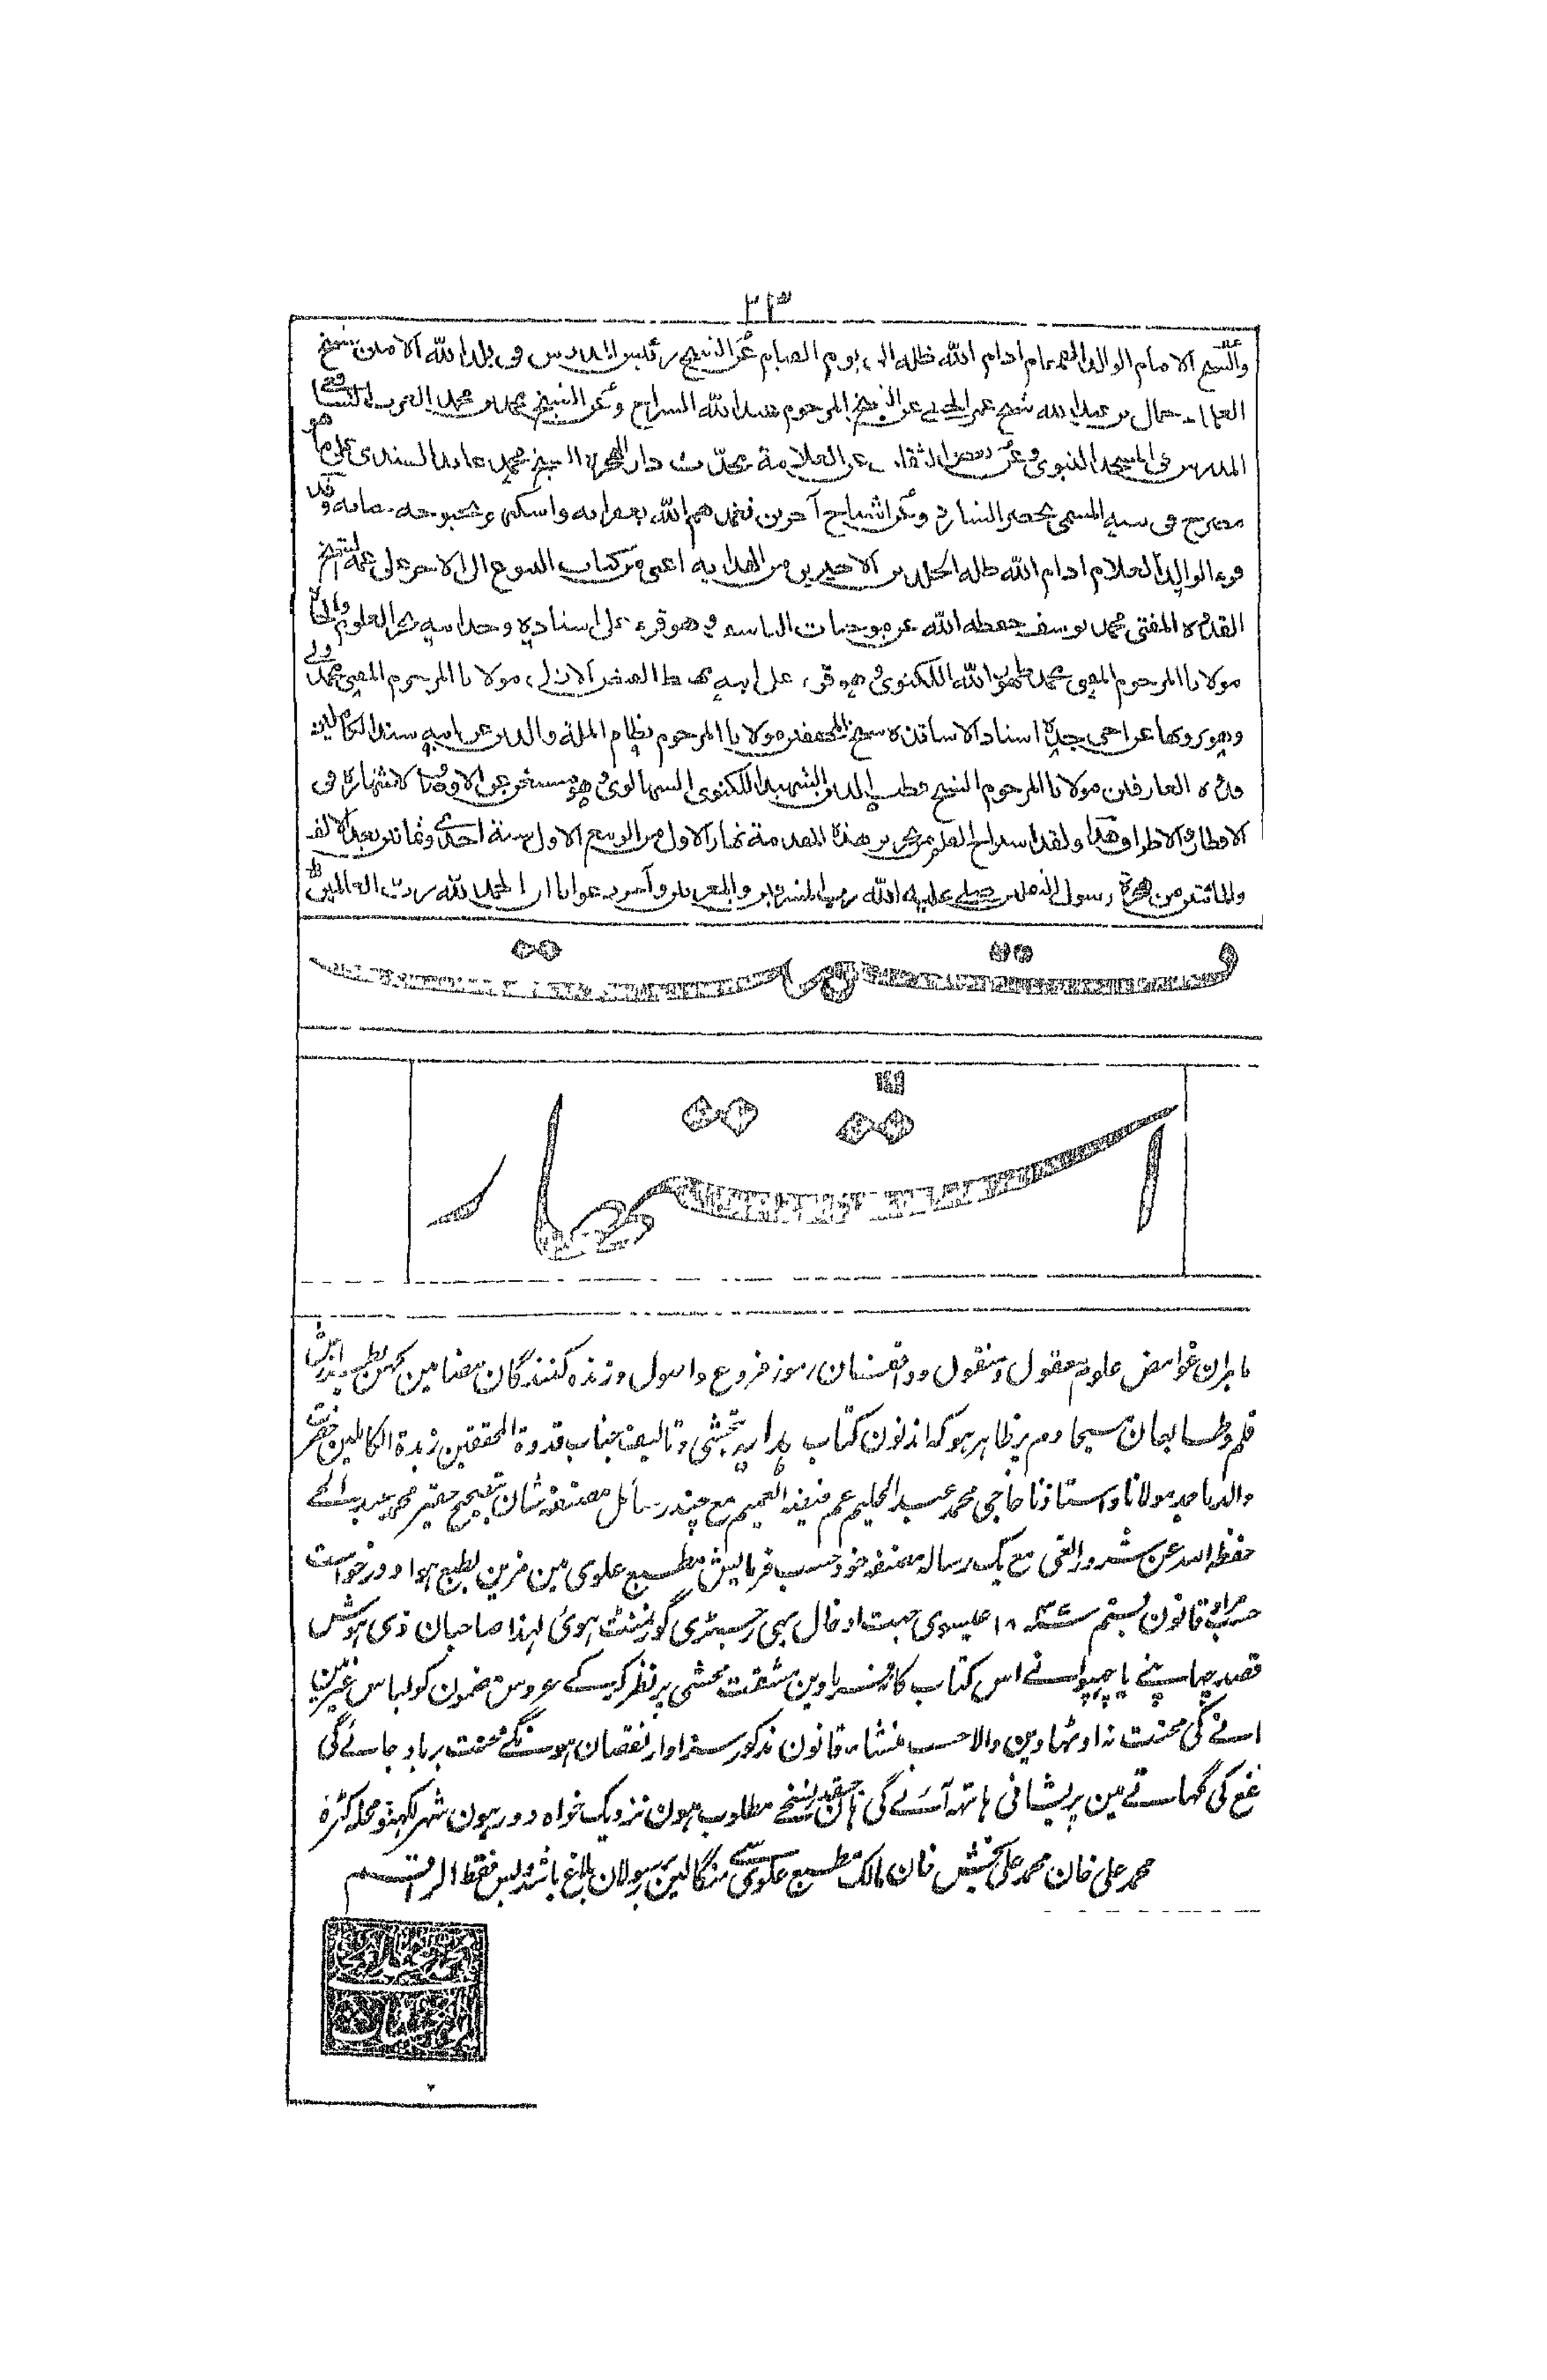 ٢٣
والشيخ الامام الوالد القمقام ادام الله ظله الى يوم القيام عن الشيخ رئيس المدرسين فى بلد الله الامين شيخ
العلماء جمال بن عبد الله شيخ عمر الحنفى عن الشيخ المرحوم عبد الله السراج وعن الشيخ محمد بن محمد العرب الشافعى
المدرس فى المسجد النبوى وعن بعض الثقات عن العلامة محدث دار الهجرة الشيخ محمد عابد السندى على ما هو
مصرح فى ثبته المسمى بحصر الشارد وعن اشياخ آخرين تغمدهم الله بغفرانه واسكنهم بحبوحة جنانه وقد
قرء الوالد العلام ادام الله ظله المجلدين الاخيرين من الهداية اعنى من كتاب البيوع الى الاخر على عمه الشيخ
القدوة المفتى محمد يوسف حفظه الله عن موجبات التاسف وهو قرء على استاذيه وجد ابيه بحر العلوم
مولانا المرحوم المفتى محمد ظهور الله اللكنوى وهو قرء على ابيه مولانا المرحوم المفتى محمد ولى
وهو يرويها عن اخى جده استاذ الاساتذة مولانا المرحوم نظام الملة والدين عن ابيه سند الكاملين
قدوة العارفين مولانا المرحوم الشيخ قطب الدين الشهيد اللكنوى السهالوى وهو مستغن عن الاوصاف لاشتهاره فى
الاقطار والاطراف هذا ولقد استراح القلم من تحرير هذه المقدمة نهار الاول من الربيع الاول سنة احدى وثمانين بعد الالف
والمائتين من هجرة رسول الثقلين صلى عليه الله رب المشرقين والمغربين وآخر دعوانا ان الحمد لله رب العالمين
وتمت
اشتهار
ماہران غوامض علوم معقول و منقول و واقفان رموز فروع و اصول و زندہ کنندگان مضامین کہن
قلم و طالبعلمان مسیحا دم پر ظاہر ہو کہ اندنون کتاب ہدایہ محشی و تالیف جناب قدوة المحققین زبدة الکاملین حضرت
والد ماجد مولانا و استاذنا حاجی محمد عبد الحلیم عم فیضہ العمیم مع چند رسائل مصنفہ شان بتصحیح حقیر محمد عبد الحے
حفظہ اللہ عن شرور الغی مع یک رسالہ مصنفہ خود حسب فرمایش مطبع علوی مین مزین بطبع ہوا اور درخواست
قانون بستم سنہ ١٨٤٧ عیسوی جہت ادخال بہی رجسٹری گورنمنٹ ہوئی لہذا صاحبان ذی ہوش
قصد چہاپنے یا چہپوانے اس کتاب کا نہ فرماوین مشقت محشی پر نظر کرکے عروس مضمون کو لباس غیر مین
لانے کی محنت نہ اوٹھاوین والا حسب منشاء قانون مذکور سزاوار نقصان ہونگے محنت برباد جائے گی
نفع کی گہاتے مین پریشانی ہاتہہ آئے گی ہان جسقدر نسخے مطلوب ہون نزدیک خواہ دور ہون شہر لکہنؤ محلہ کٹرہ
محمد علی خان محمد علی بخش خان مالک مطبع علوی سے منگا لین بر رسولان بلاغ باشد و بس فقط الراقم